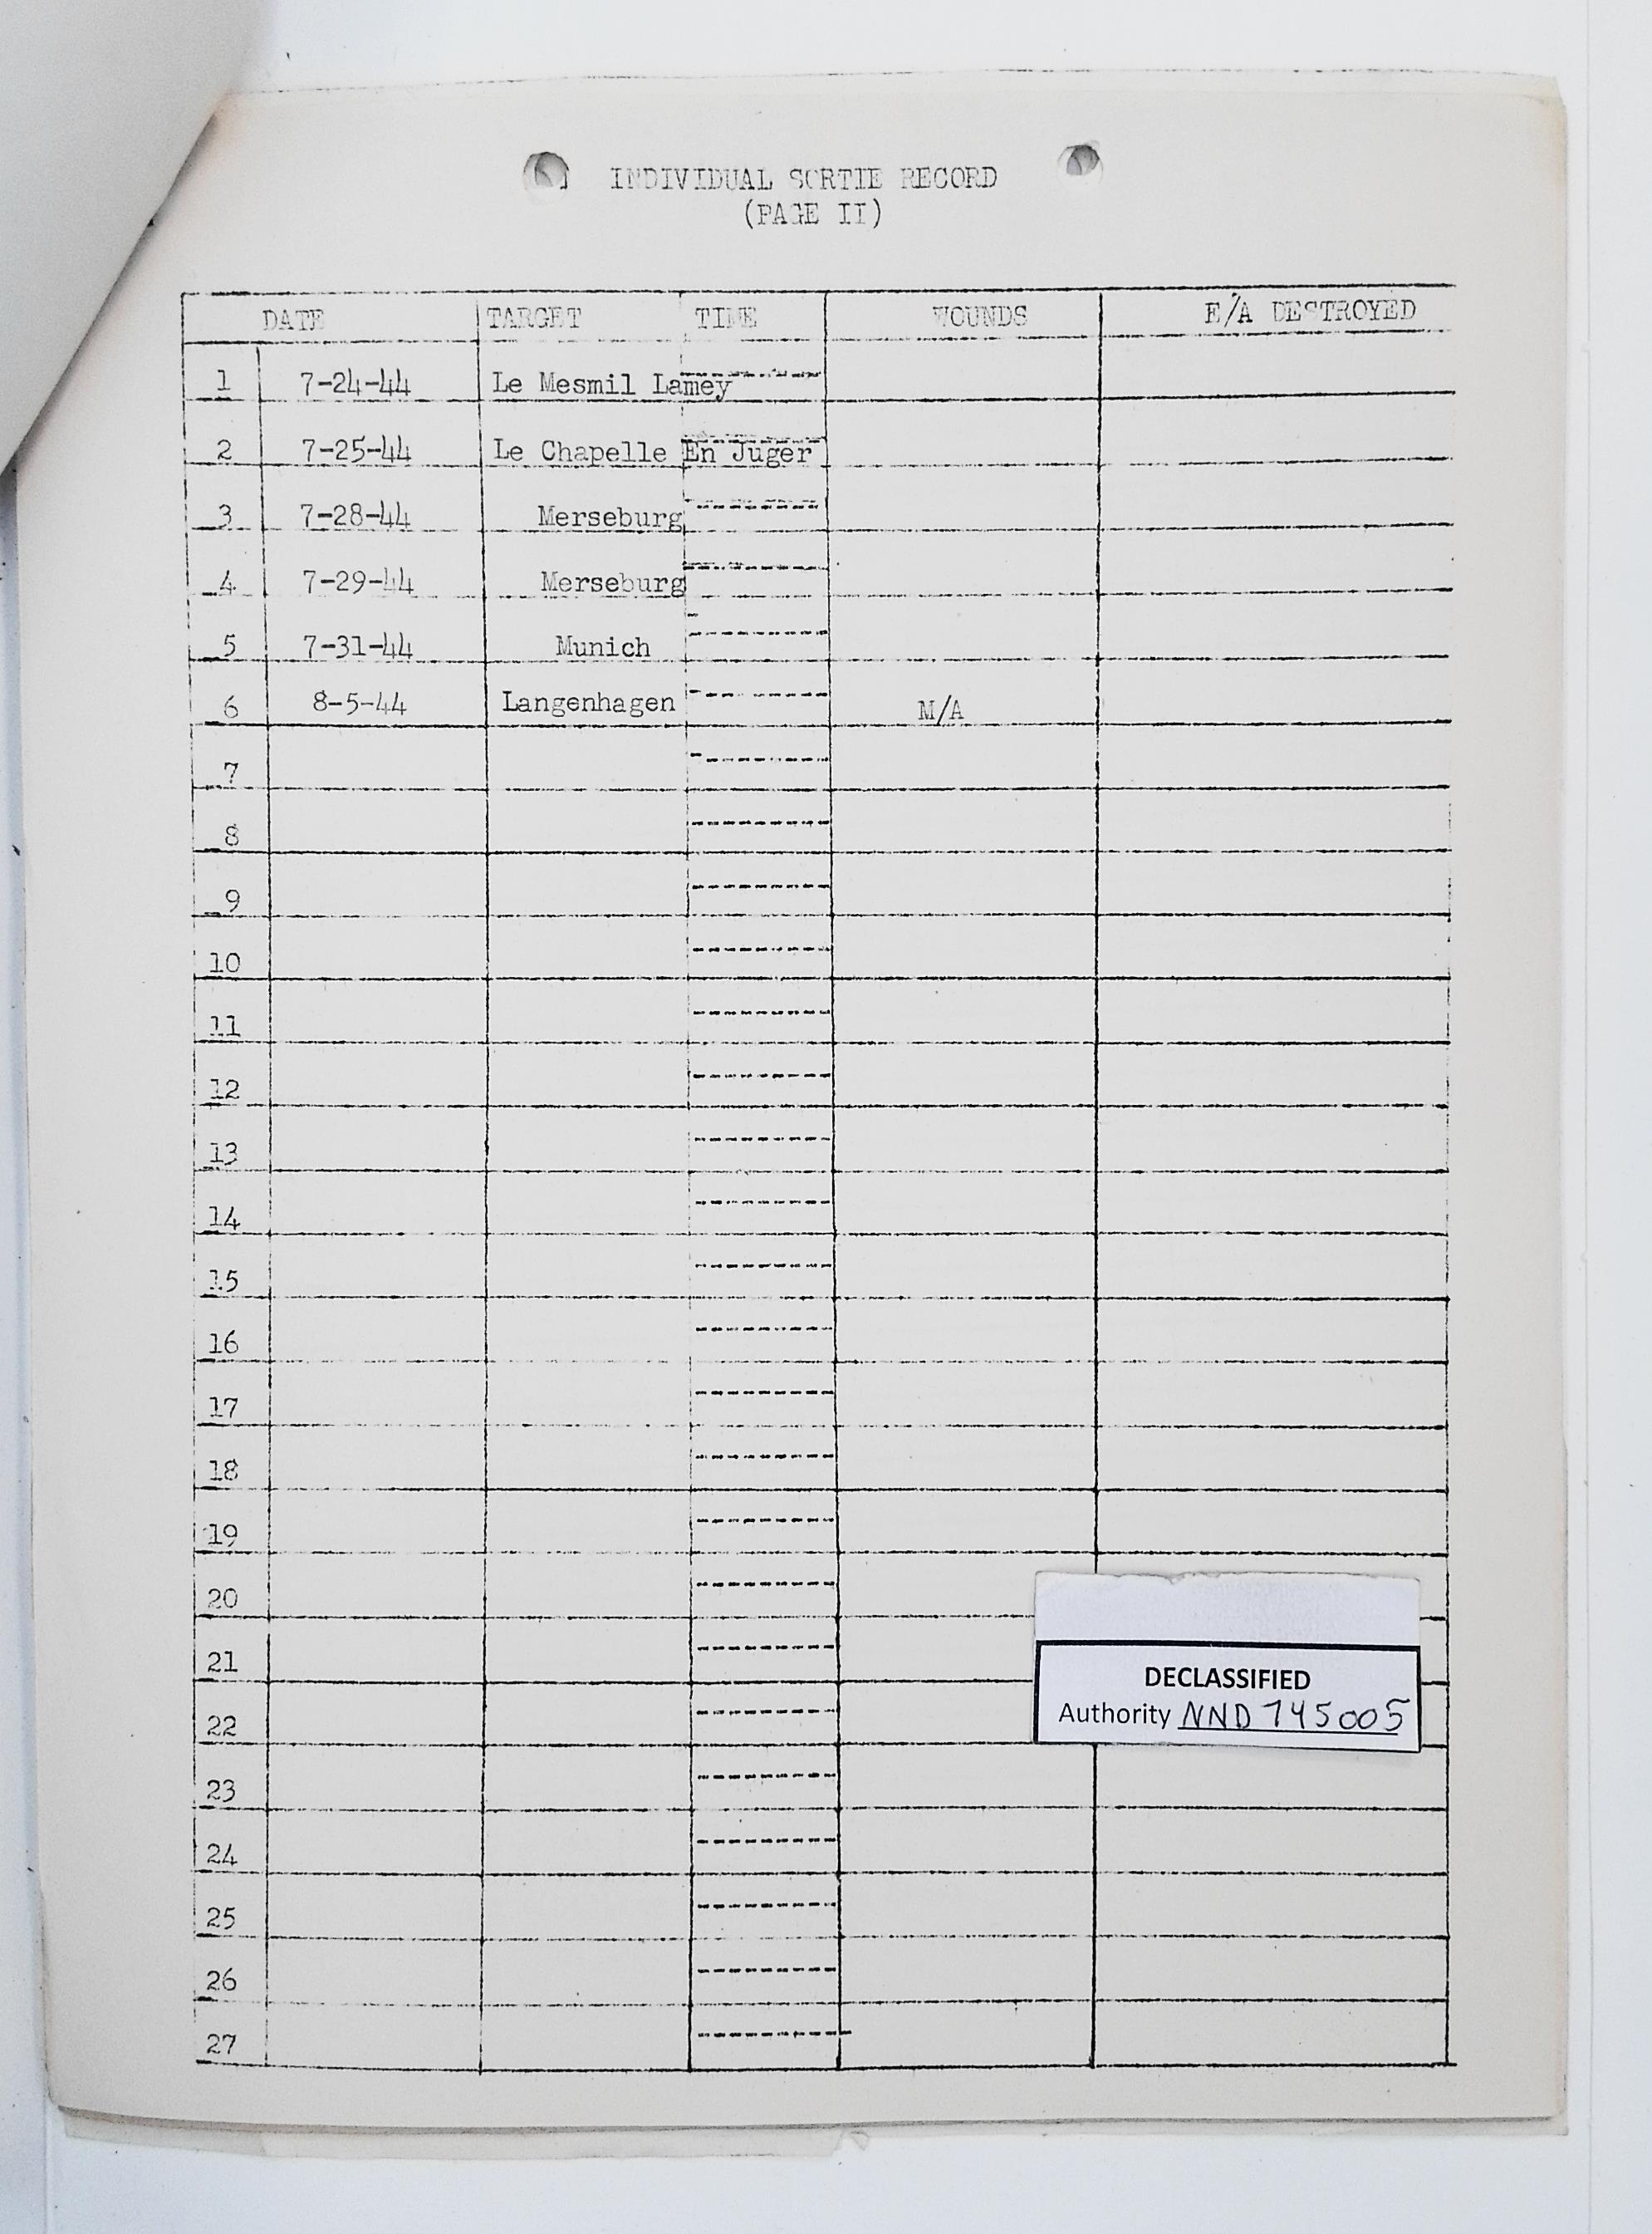 INDIVIDUAL SORTIE RECORD
(PAGE II)
DATE TARGET TIME WOUNDS E/A DESTROYED
1 7-24-44 Le Mesmil Lamey
2 7-25-44 Le Chapelle En Juger
3 7-28-44 Merseburg
4 7-29-44 Merseburg
5 7-31-44 Munich
6 8-5-44 Langenhagen M/A
7
8
9
10
11
12
13
14
15
16
17
18
19
20
21
22
23
24
25
26
27
DECLASSIFIED
Authority NND 745005